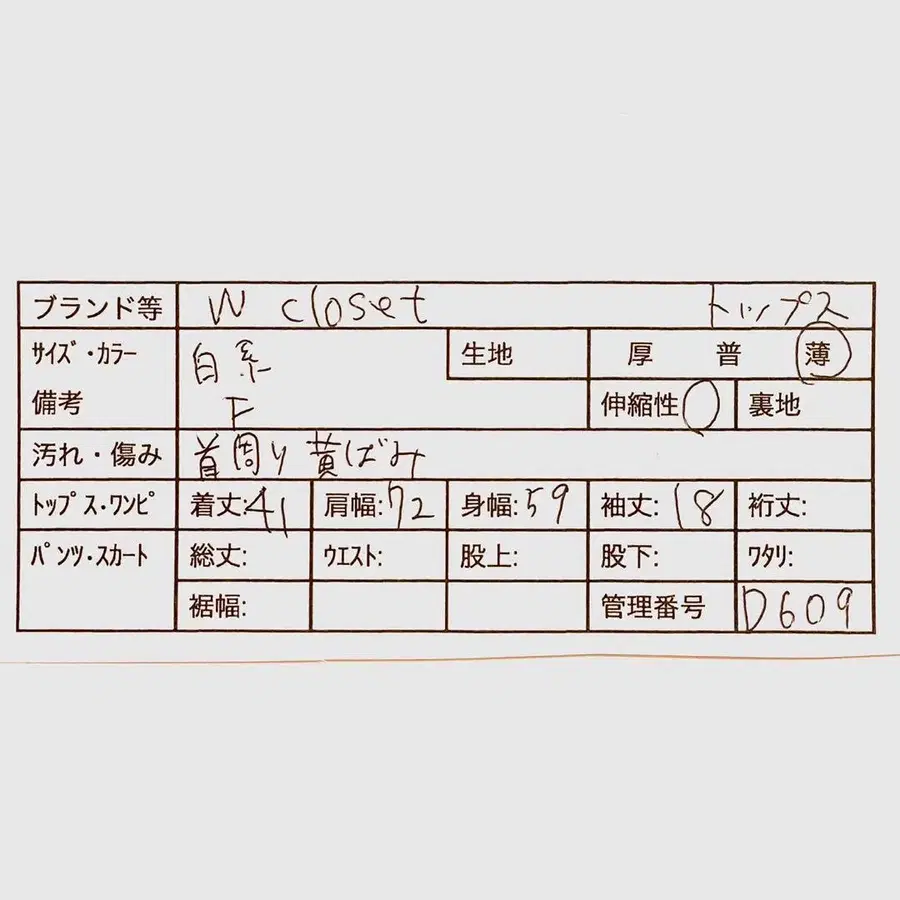 ブランド等 W closet トップス
サイズ・カラー 白系 生地 厚 普 薄
備考 F 伸縮性 ○ 裏地
汚れ・傷み 首周り黄ばみ
トップス・ワンピ 着丈:41 肩幅:72 身幅:59 袖丈:18 裄丈:
パンツ・スカート 総丈: ウエスト: 股上: 股下: ワタリ:
裾幅: 管理番号 D609